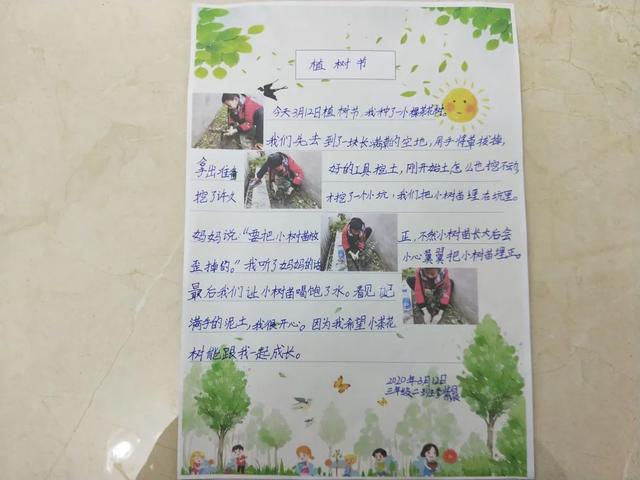 植树节
今天3月12日植树节,我种了一小棵茶花树。
我们先去到了一块长满草的空地,用手将草拔掉,
拿出准备好的工具挖土,刚开始土怎么也挖不动,
挖了许久才挖了一个小坑,我们把小树苗埋在坑里。
妈妈说:“要把小树苗放正,不然小树苗长大后会
歪掉的。”我听了妈妈的话小心翼翼把小树苗埋正。
最后我们让小树苗喝饱了水。看见自己
满手的泥土,我很开心。因为我希望小茶花
树能跟我一起成长。
2020年3月12日
三年级二班